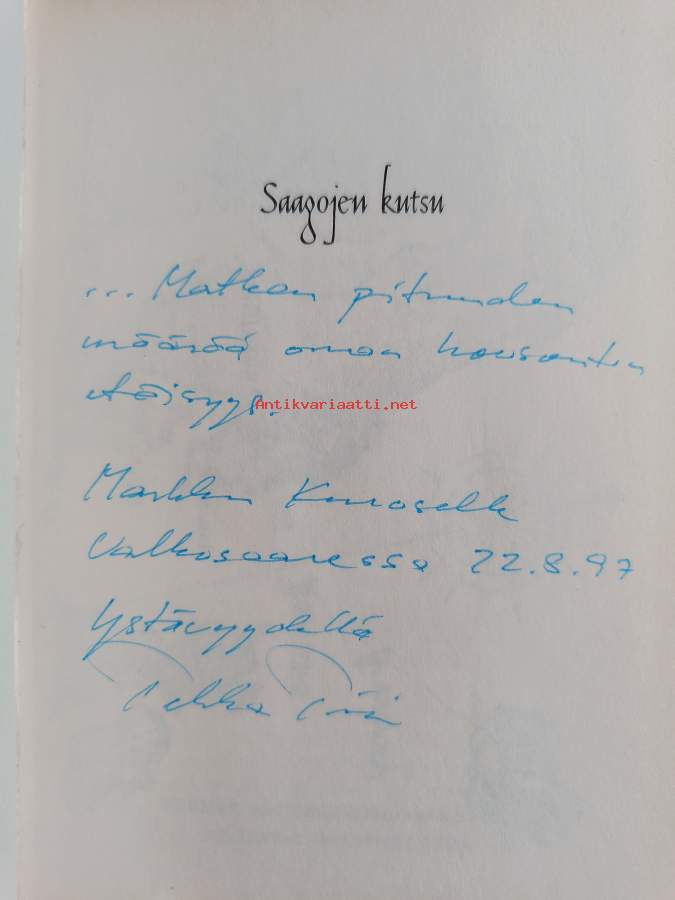 Saagojen kutsu
... Matkan pituuden
määrää oman horisontin
etäisyys.
Antikvariaatti.net
Markku Kuroselle
Valkosaaressa 22.8.97
Ystävyydellä
Pekka Piri